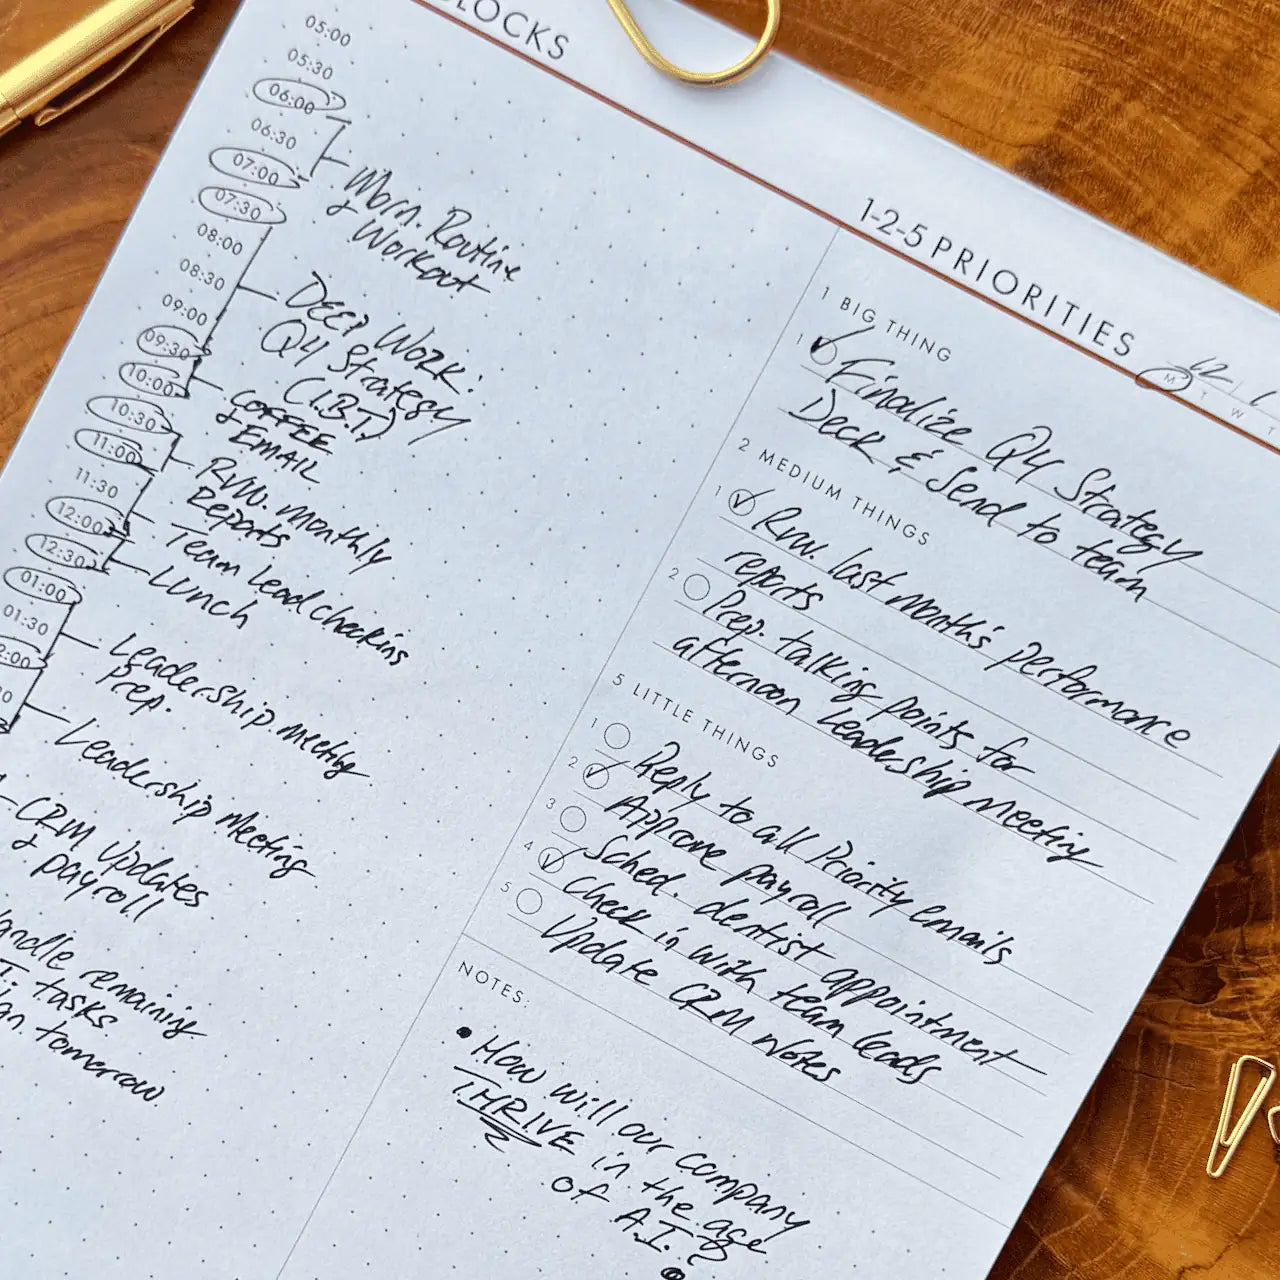 BLOCKS
05:00
05:30
06:00
06:30
07:00
07:30
08:00
08:30
09:00
09:30
10:00
10:30
11:00
11:30
12:00
12:30
01:00
01:30
2:00
Morn. Routine
& Workout
DEEP WORK:
Q4 Strategy
(I.B.T.)
COFFEE
& EMAIL
RVW. monthly
Reports
Team Lead checkins
LUNCH
Leadership meeting
Prep.
Leadership Meeting
CRM Updates
& payroll
andle remaining
tasks
an tomorrow
1-2-5 PRIORITIES
12 / 1
M T W T
1 BIG THING
1 Finalize Q4 Strategy
Deck & Send to team
2 MEDIUM THINGS
1 Rvw. last month's performance
reports
2 Prep. talking points for
afternoon leadership meeting
5 LITTLE THINGS
1 Reply to all Priority emails
2 Approve payroll
3 Sched. dentist appointment
4 Check in with team leads
5 Update CRM notes
NOTES:
• How will our company
THRIVE in the age
of A.I.?